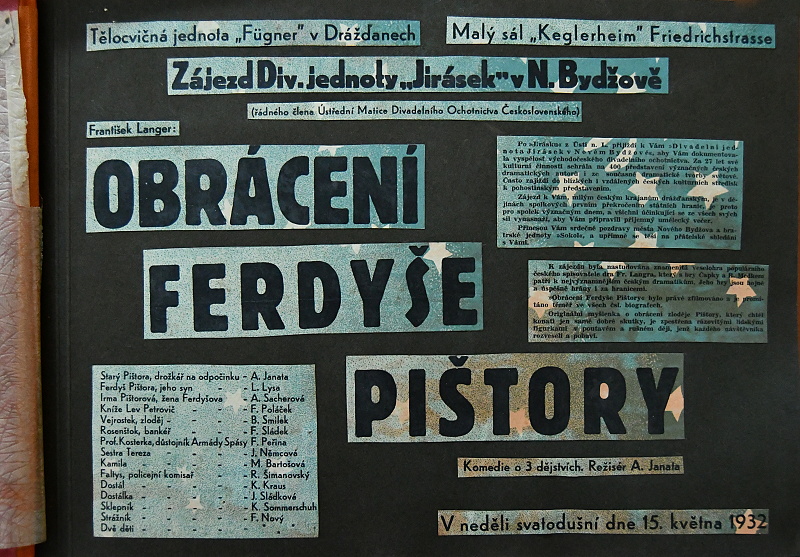 Tělocvičná jednota „Fügner" v Drážďanech
Malý sál „Keglerheim" Friedrichstrasse
Zájezd Div. jednoty „Jirásek" v N. Bydžově
(řádného člena Ústřední Matice Divadelního Ochotnictva Československého)
František Langer:
OBRÁCENÍ
FERDYŠE
PIŠTORY
Po »Jirásku« z Ústí n. L. přijíždí k Vám »Divadelní jed
nota Jirásek v Novém Bydžově«, aby Vám dokumentova-
la vyspělost východočeského divadelního ochotnictva. Za 27 let své
kulturní činnosti sehrála na 400 představení význačných českých
dramatických autorů i ze současné dramatické tvorby světové.
Často zajíždí do blízkých i vzdálených českých kulturních středisk
k pohostinským představením.
Zájezd k Vám, milým českým krajanům drážďanským, je v dě-
jinách spolkových prvním překročením státních hranic, je proto
pro spolek význačným dnem, a všichni účinkující se ze všech svých
sil vynasnaží, aby Vám připravili příjemný umělecký večer.
Přinesou Vám srdečné pozdravy města Nového Bydžova a bra-
trské jednoty »Sokol«, a upřímně se těší na přátelské shledání
s Vámi.
K zájezdu byla nastudována znamenitá veselohra populárního
českého spisovatele dra Fr. Langra, který s bry Čapky a
patří k nejvýznamnějším českým dramatikům. Jeho hry jsou hojně
a úspěšně hrány i za hranicemi.
»Obrácení Ferdyše Pištory« bylo právě zfilmováno a
táno téměř ve všech čsl. biografech.
Originální myšlenka o obrácení zloděje Pištory, který chtěl
konati jen samé dobré skutky, je zpestřena rázovitými lidskými
figurkami a poutavém a rušném ději, jenž každého návštěvníka
rozveselí a pobaví.
Starý Pištora, drožkář na odpočinku - A. Janata
Ferdyš Pištora, jeho syn - - L. Lysa
Irma Pištorová, žena Ferdyšova - A. Sacherová
Kníže Lev Petrovič - - - F. Poláček
Vejrostek, zloděj - - - - B. Smilek
Rosenštok, bankéř - - - F. Sládek
Prof. Kosterka, důstojník Armády Spásy F. Peřina
Sestra Tereza - - - - J. Němcová
Kamila - - - - M. Bartošová
Faltys, policejní komisař - - R. Šimanovský
Dostál - - - - K. Kraus
Dostálka - - - - J. Sládková
Sklepník - - - - K. Sommerschuh
Strážník - - - - F. Nový
Dvě děti - - - -
Komedie o 3 dějstvích. Režisér A. Janata
V neděli svatodušní dne 15. května 1932